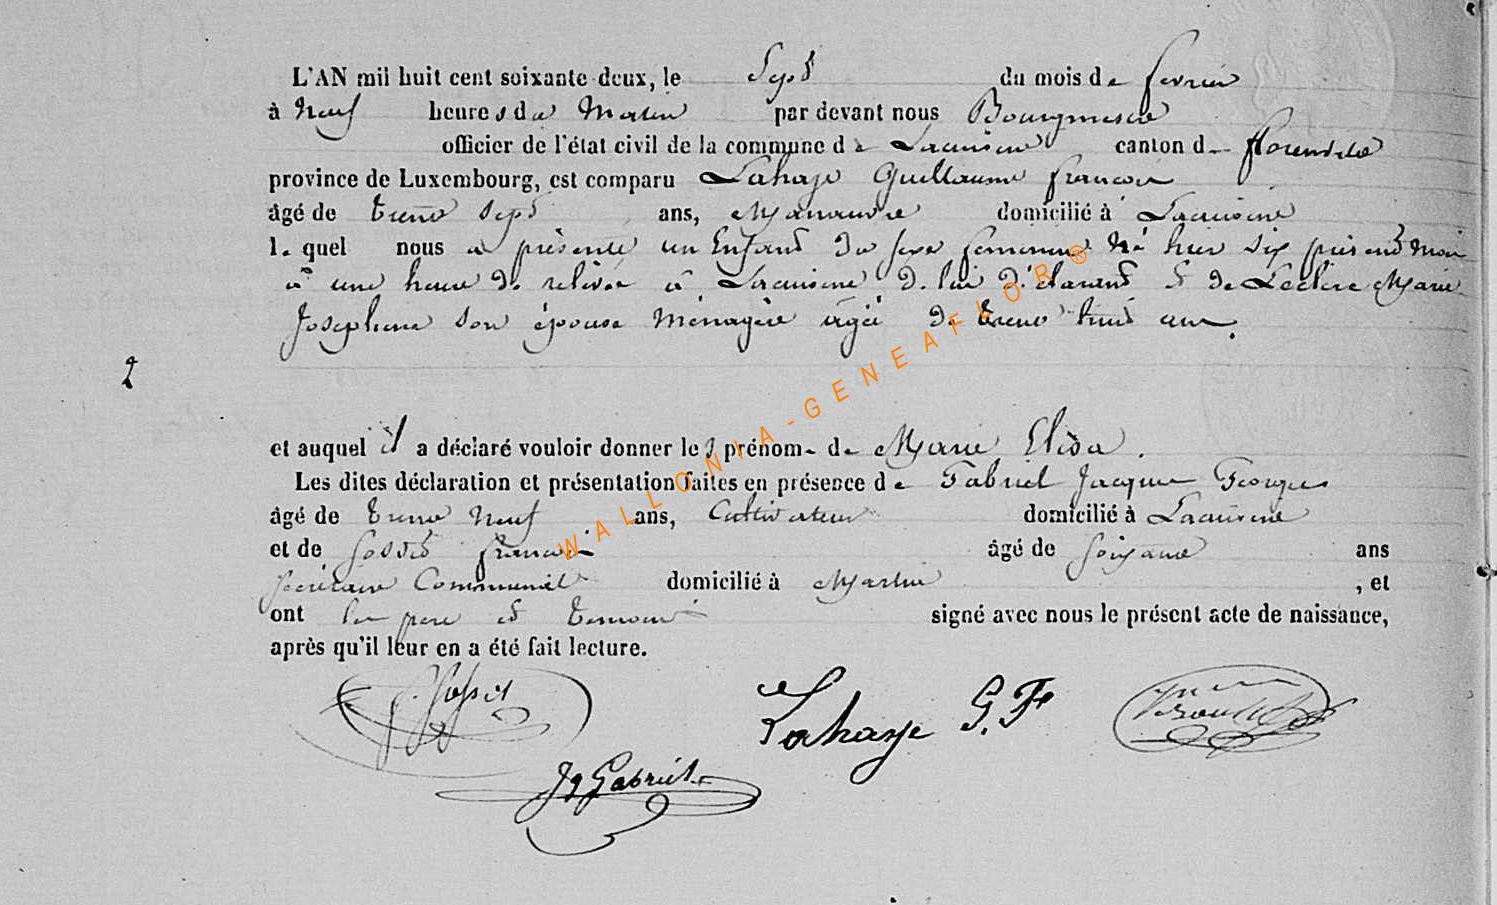 L'AN mil huit cent soixante-deux, le Sept du mois de fevrier
à Neuf heures du Matin par devant nous Bourgmestre
officier de l'état civil de la commune de Lacuisine canton de florenville
province de Luxembourg, est comparu Lahaye Guillaume francois
âgé de trente sept ans, Manœuvre domicilié à Lacuisine
lequel nous a présenté un Enfant du sexe feminin Né hier six présent mois
à une heure de relevée à Lacuisine de lui déclarant et de Leclere Marie
Josephine son épouse Ménagère agée de trente huit ans.
2
et auquel il a déclaré vouloir donner les prénoms de Marie Elisa.
Les dites déclaration et présentation faites en présence de Gabriel Jacques Georges
âgé de trente Neuf ans, Cultivateur domicilié à Lacuisine
et de francois âgé de soixante ans
secrétaire Communal domicilié à Martué , et
ont les pere et temoins signé avec nous le présent acte de naissance,
après qu'il leur en a été fait lecture.
Lahaye G. F.
Jq Gabriel
WALLONIA-GENEAFLOR ®